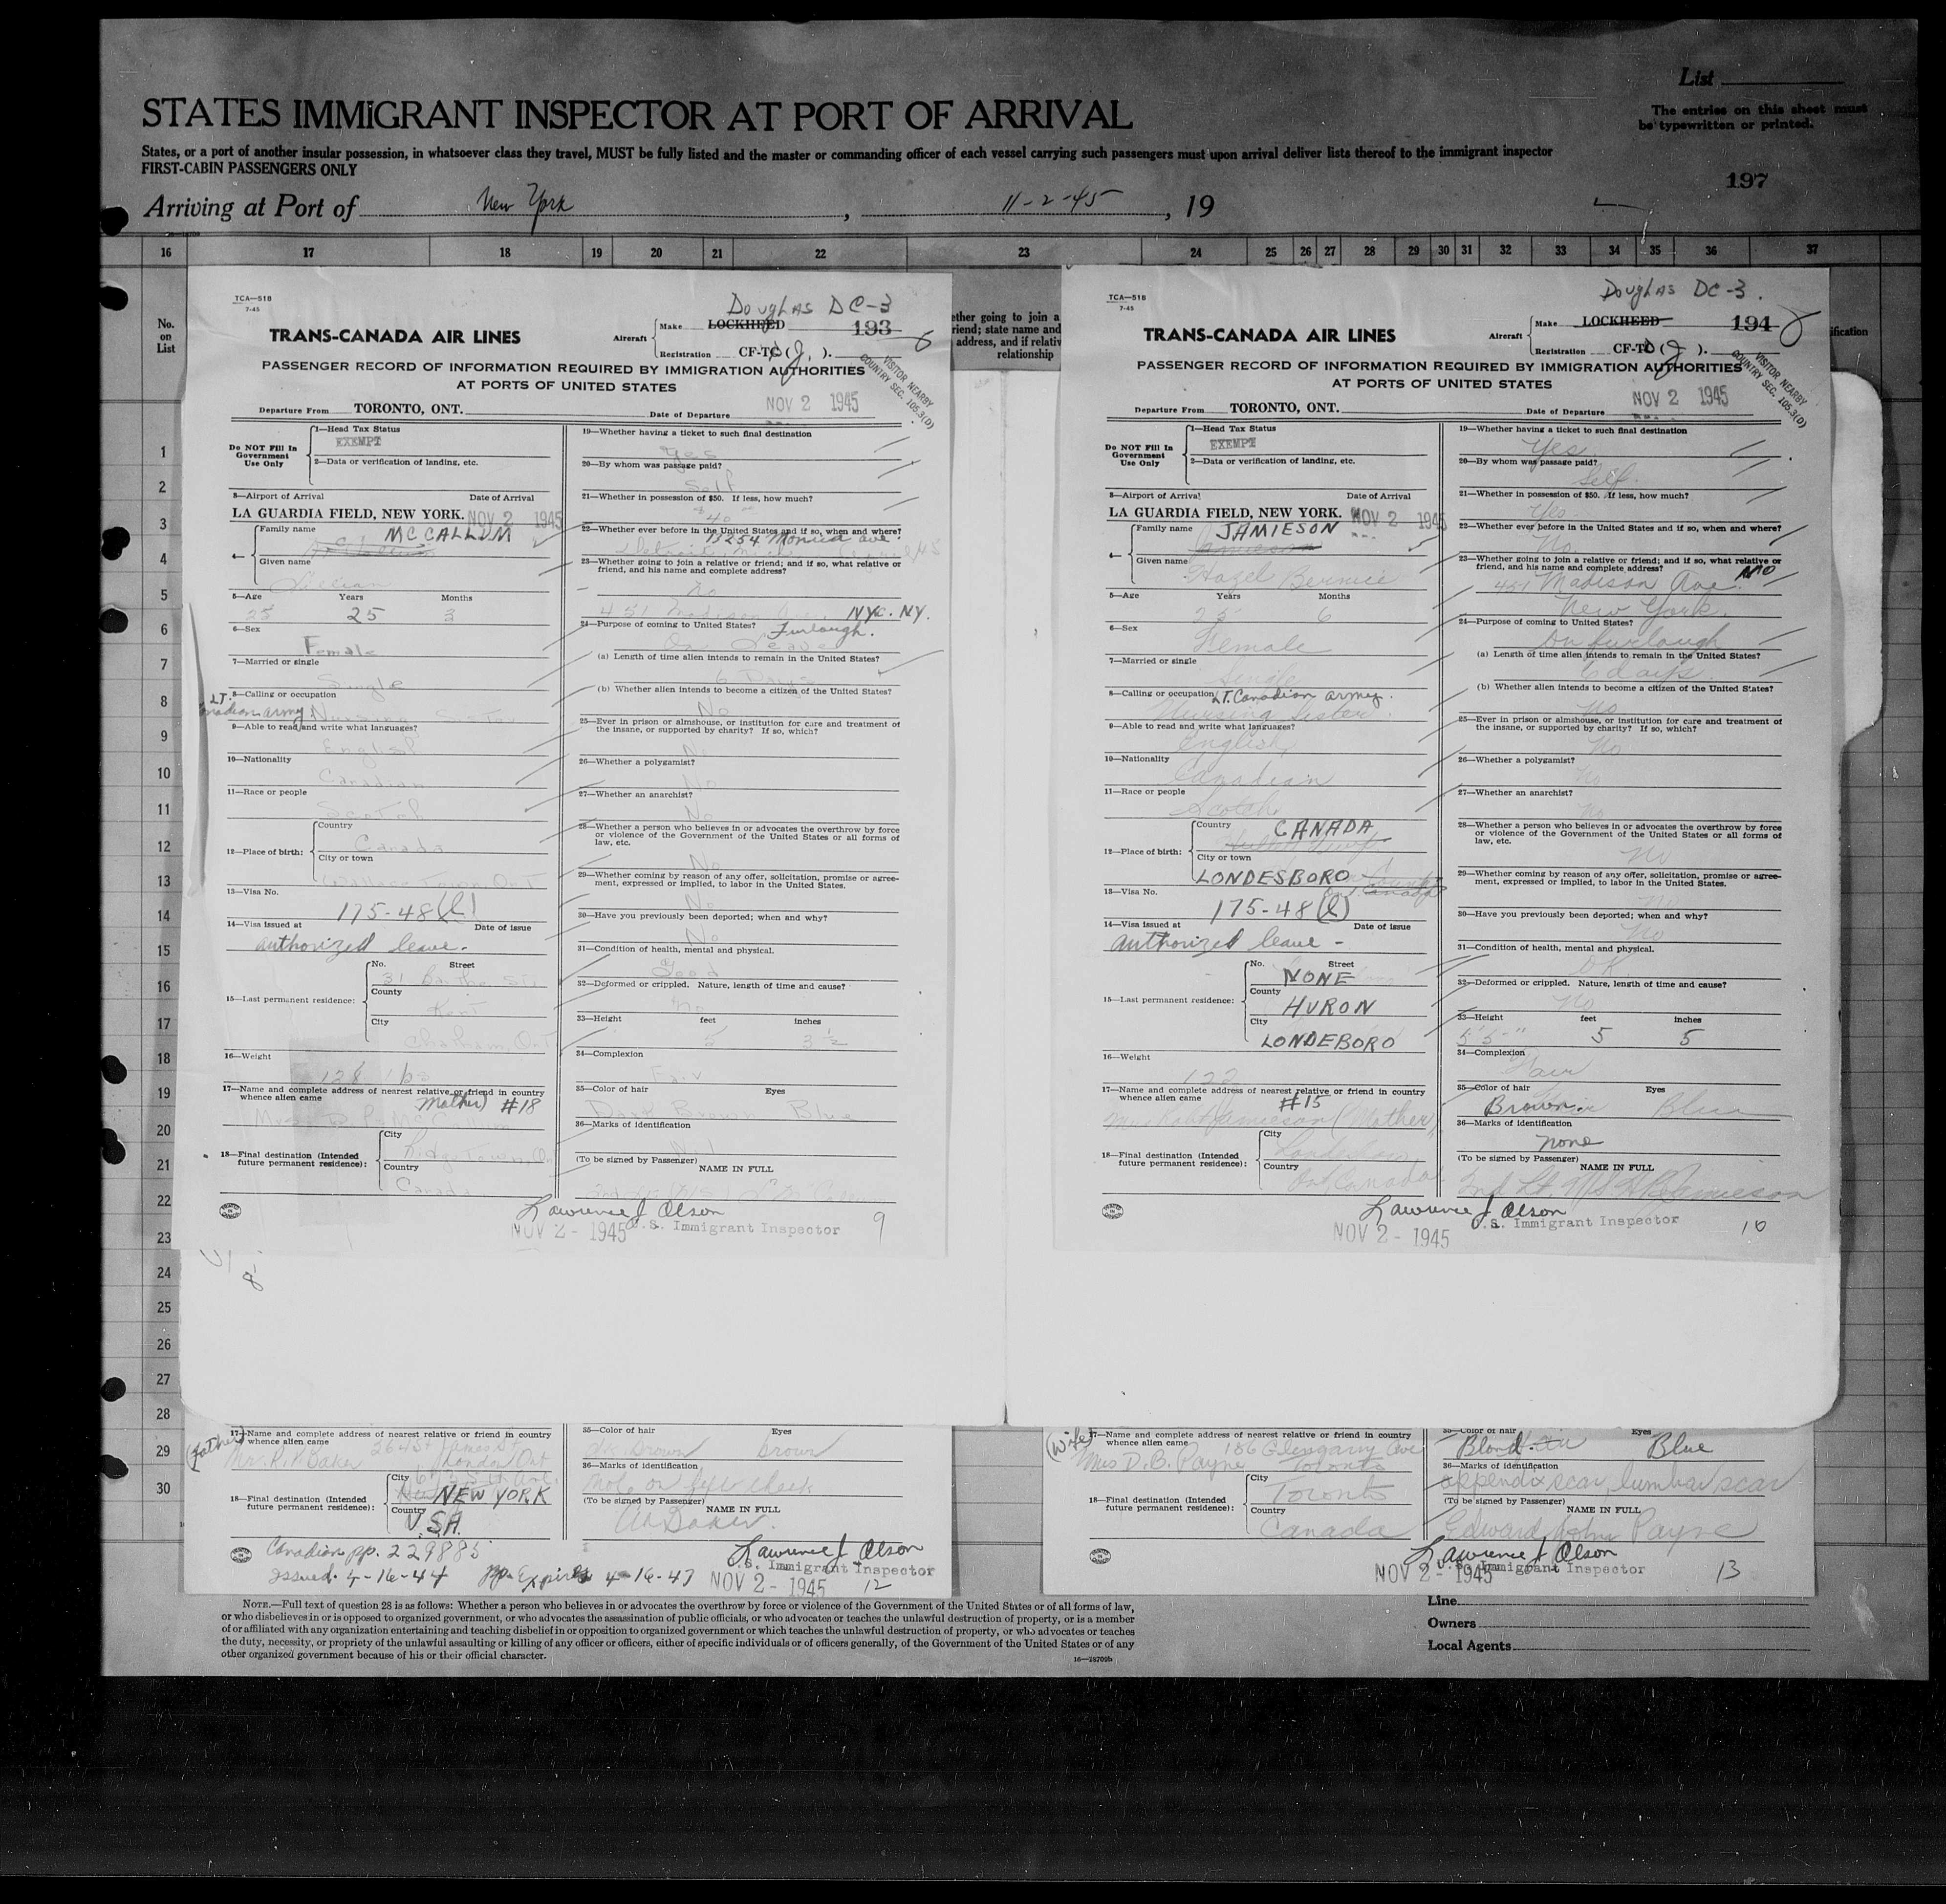 List
The entries on this sheet must
be typewritten or printed.
STATES IMMIGRANT INSPECTOR AT PORT OF ARRIVAL
States, or a port of another insular possession, in whatsoever class they travel, MUST be fully listed and the master or commanding officer of each vessel carrying such passengers must upon arrival deliver lists thereof to the immigrant inspector
FIRST-CABIN PASSENGERS ONLY
197
Arriving at Port of New York, 11-2-45, 19
16 17 18 19 20 21 22 23 24 25 26 27 28 29 30 31 32 33 34 35 36 37
No.
on
List
1
2
3
4
5
6
7
8
9
10
11
12
13
14
15
16
17
18
19
20
21
22
23
24
25
26
27
28
29
30
ether going to join a
riend; state name and
address, and if relativ
relationship
TCA—518
7-45
Douglas DC-3
TRANS-CANADA AIR LINES
Aircraft Make LOCKHEED 193
Registration CF-TC (J.).
PASSENGER RECORD OF INFORMATION REQUIRED BY IMMIGRATION AUTHORITIES
AT PORTS OF UNITED STATES
VISITOR NEARBY
COUNTRY SEC. 105.3(D)
Departure From TORONTO, ONT. Date of Departure NOV 2 1945
Do NOT Fill In
Government
Use Only
1—Head Tax Status
EXEMPT
2—Data or verification of landing, etc.
3—Airport of Arrival Date of Arrival
LA GUARDIA FIELD, NEW YORK. NOV 2 1945
4— Family name MCCALLUM
Given name
Lillian
5—Age Years Months
25 25 3
6—Sex
Female
7—Married or single
Single
8—Calling or occupation
LT.
Canadian army Nursing Sister
9—Able to read and write what languages?
English
10—Nationality
Canadian
11—Race or people
Scotch
12—Place of birth: Country
Canada
City or town
13—Visa No.
175-48(l)
14—Visa issued at Date of issue
authorized leave.
15—Last permanent residence: No. Street
31
County
Kent
City
Chatham, Ont
16—Weight
128 lbs
17—Name and complete address of nearest relative or friend in country
whence alien came
Mother) #18
18—Final destination (Intended
future permanent residence): City
Ridgetown, On
Country
Canada
19—Whether having a ticket to such final destination
Yes
20—By whom was passage paid?
Self
21—Whether in possession of $50. If less, how much?
40
22—Whether ever before in the United States and if so, when and where?
13254 Monica ave.
Detroit, Mich
23—Whether going to join a relative or friend; and if so, what relative or
friend, and his name and complete address?
No
451 Madison NYC. NY.
24—Purpose of coming to United States? Furlough.
On Leave
(a) Length of time alien intends to remain in the United States?
6 Days
(b) Whether alien intends to become a citizen of the United States?
No
25—Ever in prison or almshouse, or institution for care and treatment of
the insane, or supported by charity? If so, which?
No
26—Whether a polygamist?
No
27—Whether an anarchist?
No
28—Whether a person who believes in or advocates the overthrow by force
or violence of the Government of the United States or all forms of
law, etc.
No
29—Whether coming by reason of any offer, solicitation, promise or agree-
ment, expressed or implied, to labor in the United States.
No
30—Have you previously been deported; when and why?
No
31—Condition of health, mental and physical.
Good
32—Deformed or crippled. Nature, length of time and cause?
No
33—Height feet inches
5 3 ½
34—Complexion
35—Color of hair Eyes
Dark Brown Blue
36—Marks of identification
Nil
(To be signed by Passenger)
NAME IN FULL
Lawrence J Olson
NOV 2 - 1945 U.S. Immigrant Inspector 9
8
TCA—518
7-45
Douglas DC-3.
TRANS-CANADA AIR LINES
Aircraft Make LOCKHEED 194
Registration CF-TC (J).
PASSENGER RECORD OF INFORMATION REQUIRED BY IMMIGRATION AUTHORITIES
AT PORTS OF UNITED STATES
VISITOR NEARBY
COUNTRY SEC. 105.3(D)
Departure From TORONTO, ONT. Date of Departure NOV 2 1945
Do NOT Fill In
Government
Use Only
1—Head Tax Status
EXEMPT
2—Data or verification of landing, etc.
3—Airport of Arrival Date of Arrival
LA GUARDIA FIELD, NEW YORK. NOV 2 1945
4— Family name JAMIESON
Jamieson
Given name
Hazel Bernice
5—Age Years Months
25 6
6—Sex
Female
7—Married or single
Single
8—Calling or occupation LT. Canadian army.
Nursing Sister
9—Able to read and write what languages?
English
10—Nationality
Canadian
11—Race or people
Scotch
12—Place of birth: Country
CANADA
City or town
LONDESBORO
13—Visa No.
175-48(l)
14—Visa issued at Date of issue
authorized leave -
15—Last permanent residence: No. Street
NONE
County
HURON
City
LONDEBORO
16—Weight
122
17—Name and complete address of nearest relative or friend in country
whence alien came
#15
Jamieson (Mother)
18—Final destination (Intended
future permanent residence): City
Country
Ont Canada
19—Whether having a ticket to such final destination
Yes
20—By whom was passage paid?
Self.
21—Whether in possession of $50. If less, how much?
Yes
22—Whether ever before in the United States and if so, when and where?
No.
23—Whether going to join a relative or friend; and if so, what relative or
friend, and his name and complete address? NO
451 Madison Ave
New York.
24—Purpose of coming to United States?
On furlough
(a) Length of time alien intends to remain in the United States?
6 days.
(b) Whether alien intends to become a citizen of the United States?
No
25—Ever in prison or almshouse, or institution for care and treatment of
the insane, or supported by charity? If so, which?
No
26—Whether a polygamist?
No
27—Whether an anarchist?
No
28—Whether a person who believes in or advocates the overthrow by force
or violence of the Government of the United States or all forms of
law, etc.
No
29—Whether coming by reason of any offer, solicitation, promise or agree-
ment, expressed or implied, to labor in the United States.
No
30—Have you previously been deported; when and why?
No
31—Condition of health, mental and physical.
OK
32—Deformed or crippled. Nature, length of time and cause?
No
33—Height feet inches
5'5" 5 5
34—Complexion
Fair
35—Color of hair Eyes
Brown. Blue
36—Marks of identification
none
(To be signed by Passenger)
NAME IN FULL
2nd Lt. Jamieson
Lawrence J Olson
NOV 2 - 1945 U.S. Immigrant Inspector 10
(Father)
17—Name and complete address of nearest relative or friend in country
whence alien came
Mr. R. P. Baker London Ont
18—Final destination (Intended
future permanent residence): City
NEW YORK
Country
U.S.A.
35—Color of hair Eyes
dk brown brown
36—Marks of identification
Mole on left cheek
(To be signed by Passenger)
NAME IN FULL
Baker.
Canadian pp. 229885
Issued. 4-16-44 pp. Expires 4-16-47
Lawrence J Olson
U.S. Immigrant Inspector
NOV 2 - 1945 12
(Wife)
17—Name and complete address of nearest relative or friend in country
whence alien came 186 Glengarry Ave
Mrs D. B. Payne Toronto
18—Final destination (Intended
future permanent residence): City
Toronto
Country
Canada
35—Color of hair Eyes
Blond. Blue
36—Marks of identification
appendix scar, lumbar scar
(To be signed by Passenger)
NAME IN FULL
Edward John Payne
Lawrence J Olson
NOV 2 - 1945 U.S. Immigrant Inspector 13
NOTE.—Full text of question 28 is as follows: Whether a person who believes in or advocates the overthrow by force or violence of the Government of the United States or of all forms of law,
or who disbelieves in or is opposed to organized government, or who advocates the assassination of public officials, or who advocates or teaches the unlawful destruction of property, or is a member
of or affiliated with any organization entertaining and teaching disbelief in or opposition to organized government or which teaches the unlawful destruction of property, or who advocates or teaches
the duty, necessity, or propriety of the unlawful assaulting or killing of any officer or officers, either of specific individuals or of officers generally, of the Government of the United States or of any
other organized government because of his or their official character.
16—18709b
Line
Owners
Local Agents